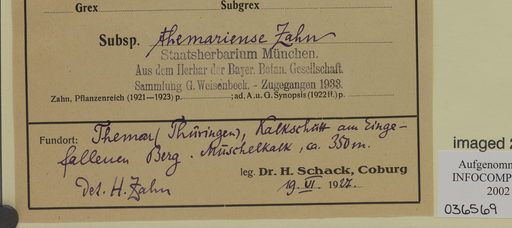 Grex Subgrex
Subsp. themariense Zahn
Staatsherbarium München.
Aus dem Herbar der Bayer. Botan. Gesellschaft.
Sammlung G. Weisenbeck. - Zugegangen 1933.
Zahn, Pflanzenreich (1921—1923) p. ; ad. A. u. G. Synopsis (1922 ff.) p.
Fundort: Themar (Thüringen), Kalkschutt am Einge-
fallenen Berg. Muschelkalk, ca. 350 m.
leg. Dr. H. Schack, Coburg
Det. H. Zahn 19. VI. 1927.
imaged 2
Aufgenomm
INFOCOMP
2002
036569